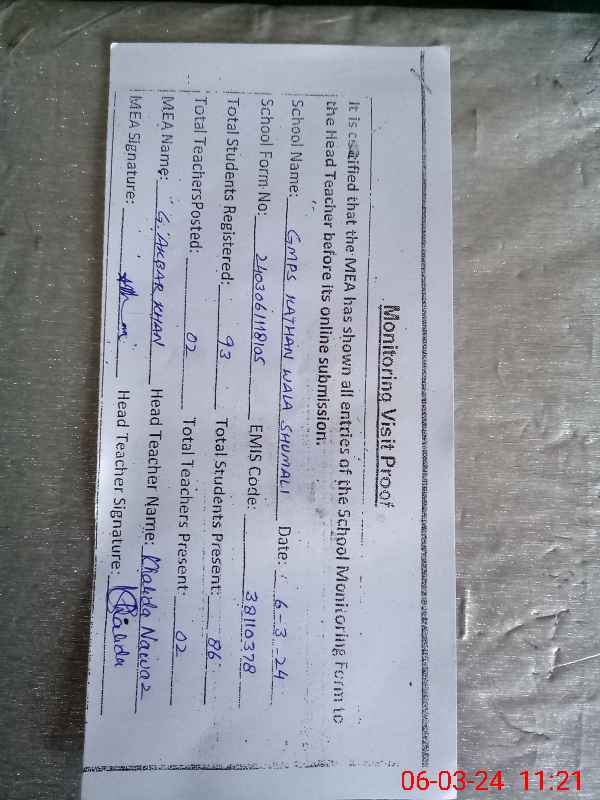 Monitoring Visit Proof
It is certified that the MEA has shown all entries of the School Monitoring Form to
the Head Teacher before its online submission.
School Name: GMPS KATHAN WALA SHUMALI Date: 6-3-24
School Form No: 2403061118105 EMIS Code: 38110378
Total Students Registered: 93 Total Students Present: 86
Total TeachersPosted: 02 Total Teachers Present: 02
MEA Name: G. AKBAR KHAN Head Teacher Name: Khalida Nawaz
MEA Signature: Head Teacher Signature: Khalida
06-03-24 11:21